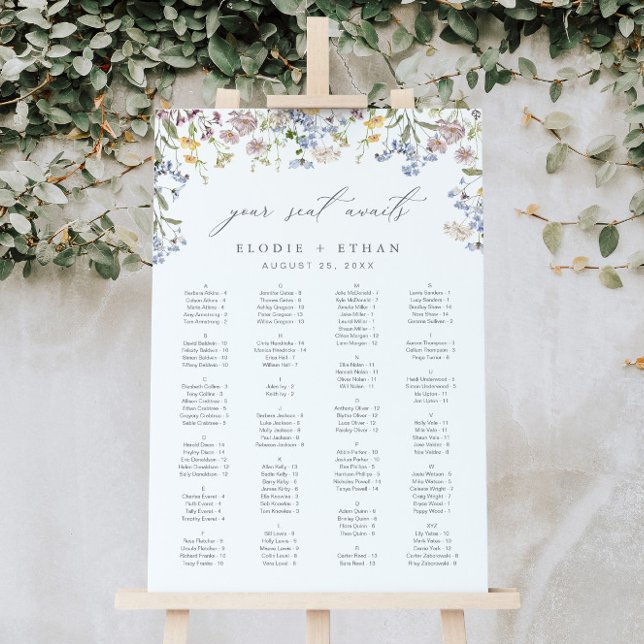 your seat awaits
ELODIE + ETHAN
AUGUST 25, 20XX
A
Barbara Atkins - 4
Colson Atkins - 4
Marie Atkins - 4
Amy Armstrong - 2
Tom Armstrong - 2
B
David Baldwin - 10
Felicity Baldwin - 10
Simon Baldwin - 10
Tiffany Baldwin - 10
C
Elizabeth Collins - 3
Tony Collins - 4
Allison Crabtree - 5
Ethan Crabtree - 5
Gregory Crabtree - 5
Sable Crabtree - 5
D
Harold Dixon - 14
Hayley Dixon - 14
Eric Donaldson - 12
Helen Donaldson - 12
Sally Donaldson - 12
E
Charles Everet - 4
Ruth Everet - 4
Tally Everet - 4
Timothy Everet - 4
F
Rose Fletcher - 9
Ursula Fletcher - 9
Richard Franko - 12
Tracy Franko - 12
G
Jennifer Gates - 8
Thomas Gates - 8
Ashley Gregson - 13
Peter Gregson - 13
Willow Gregson - 13
H
Chris Hendricks - 14
Monica Hendricks - 14
Erica Hall - 7
William Hall - 7
I
Jules Ivy - 2
Keith Ivy - 2
J
Barbara Jackson - 8
Luke Jackson - 8
Molly Jackson - 8
Paul Jackson - 8
Rebecca Jackson - 8
K
Allan Kelly - 6
Sadie Kelly - 6
Barry Kirby - 6
James Kirby - 6
Ella Knowles - 3
Sob Knowles - 3
Tom Knowles - 3
L
Bill Lewis - 9
Holly Lewis - 9
Maeve Lewis - 9
Colin Lovel - 6
Vera Lovel - 6
M
Jolie McDonald - 7
Kyle McDonald - 7
Amelia Miller - 1
Jake Miller - 1
Laurel Miller - 1
Shaun Miller - 1
Chloe Morgan - 12
Liam Morgan - 12
N
Ella Nolan - 11
Hannah Nolan - 11
Oliver Nolan - 11
Will Nolan - 11
O
Anthony Oliver - 2
Buddy Oliver - 2
Luca Oliver - 2
Paisley Oliver - 2
P
Albin Parker - 10
Joshua Parker - 10
Elsa Phillips - 5
Harrison Phillips - 5
Nicholas Powell - 14
Tanya Powell - 14
Q
Adam Quinn - 6
Brinley Quinn - 6
Flora Quinn - 6
Theo Quinn - 6
R
Carter Reed - 13
Sara Reed - 13
S
Lewis Sanders - 11
Lucy Sanders - 11
Bradley Shaw - 14
Nora Shaw - 14
Gemma Sullivan - 2
T
Aaron Thompson - 3
Callum Thompson - 3
Paige Turner - 8
U
Heidi Underwood - 3
Simon Underwood - 3
Ida Upton - 11
Joe Upton - 11
V
Holly Vale - 5
Mila Vale - 5
Shaun Vale - 5
Jose Valdez - 8
Marcus Valdez - 8
W
Josie Watson - 5
Mike Watson - 5
Celeste Wright - 7
Craig Wright - 7
Bryce Wood - 2
Poppy Wood - 1
XYZ
Lily Yates - 10
Mark Yates - 10
Carrie York - 12
Carter Zaborowski - 9
Riley Zaborowski - 9